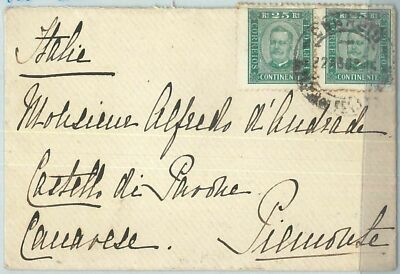 Rs 25 Rs
CORREIOS
CONTINENTE
25 Rs
CONTINENTE
Italie
Monsieur Alfredo d'Andrade
Castello di Pavone
Canavese. Piemonte